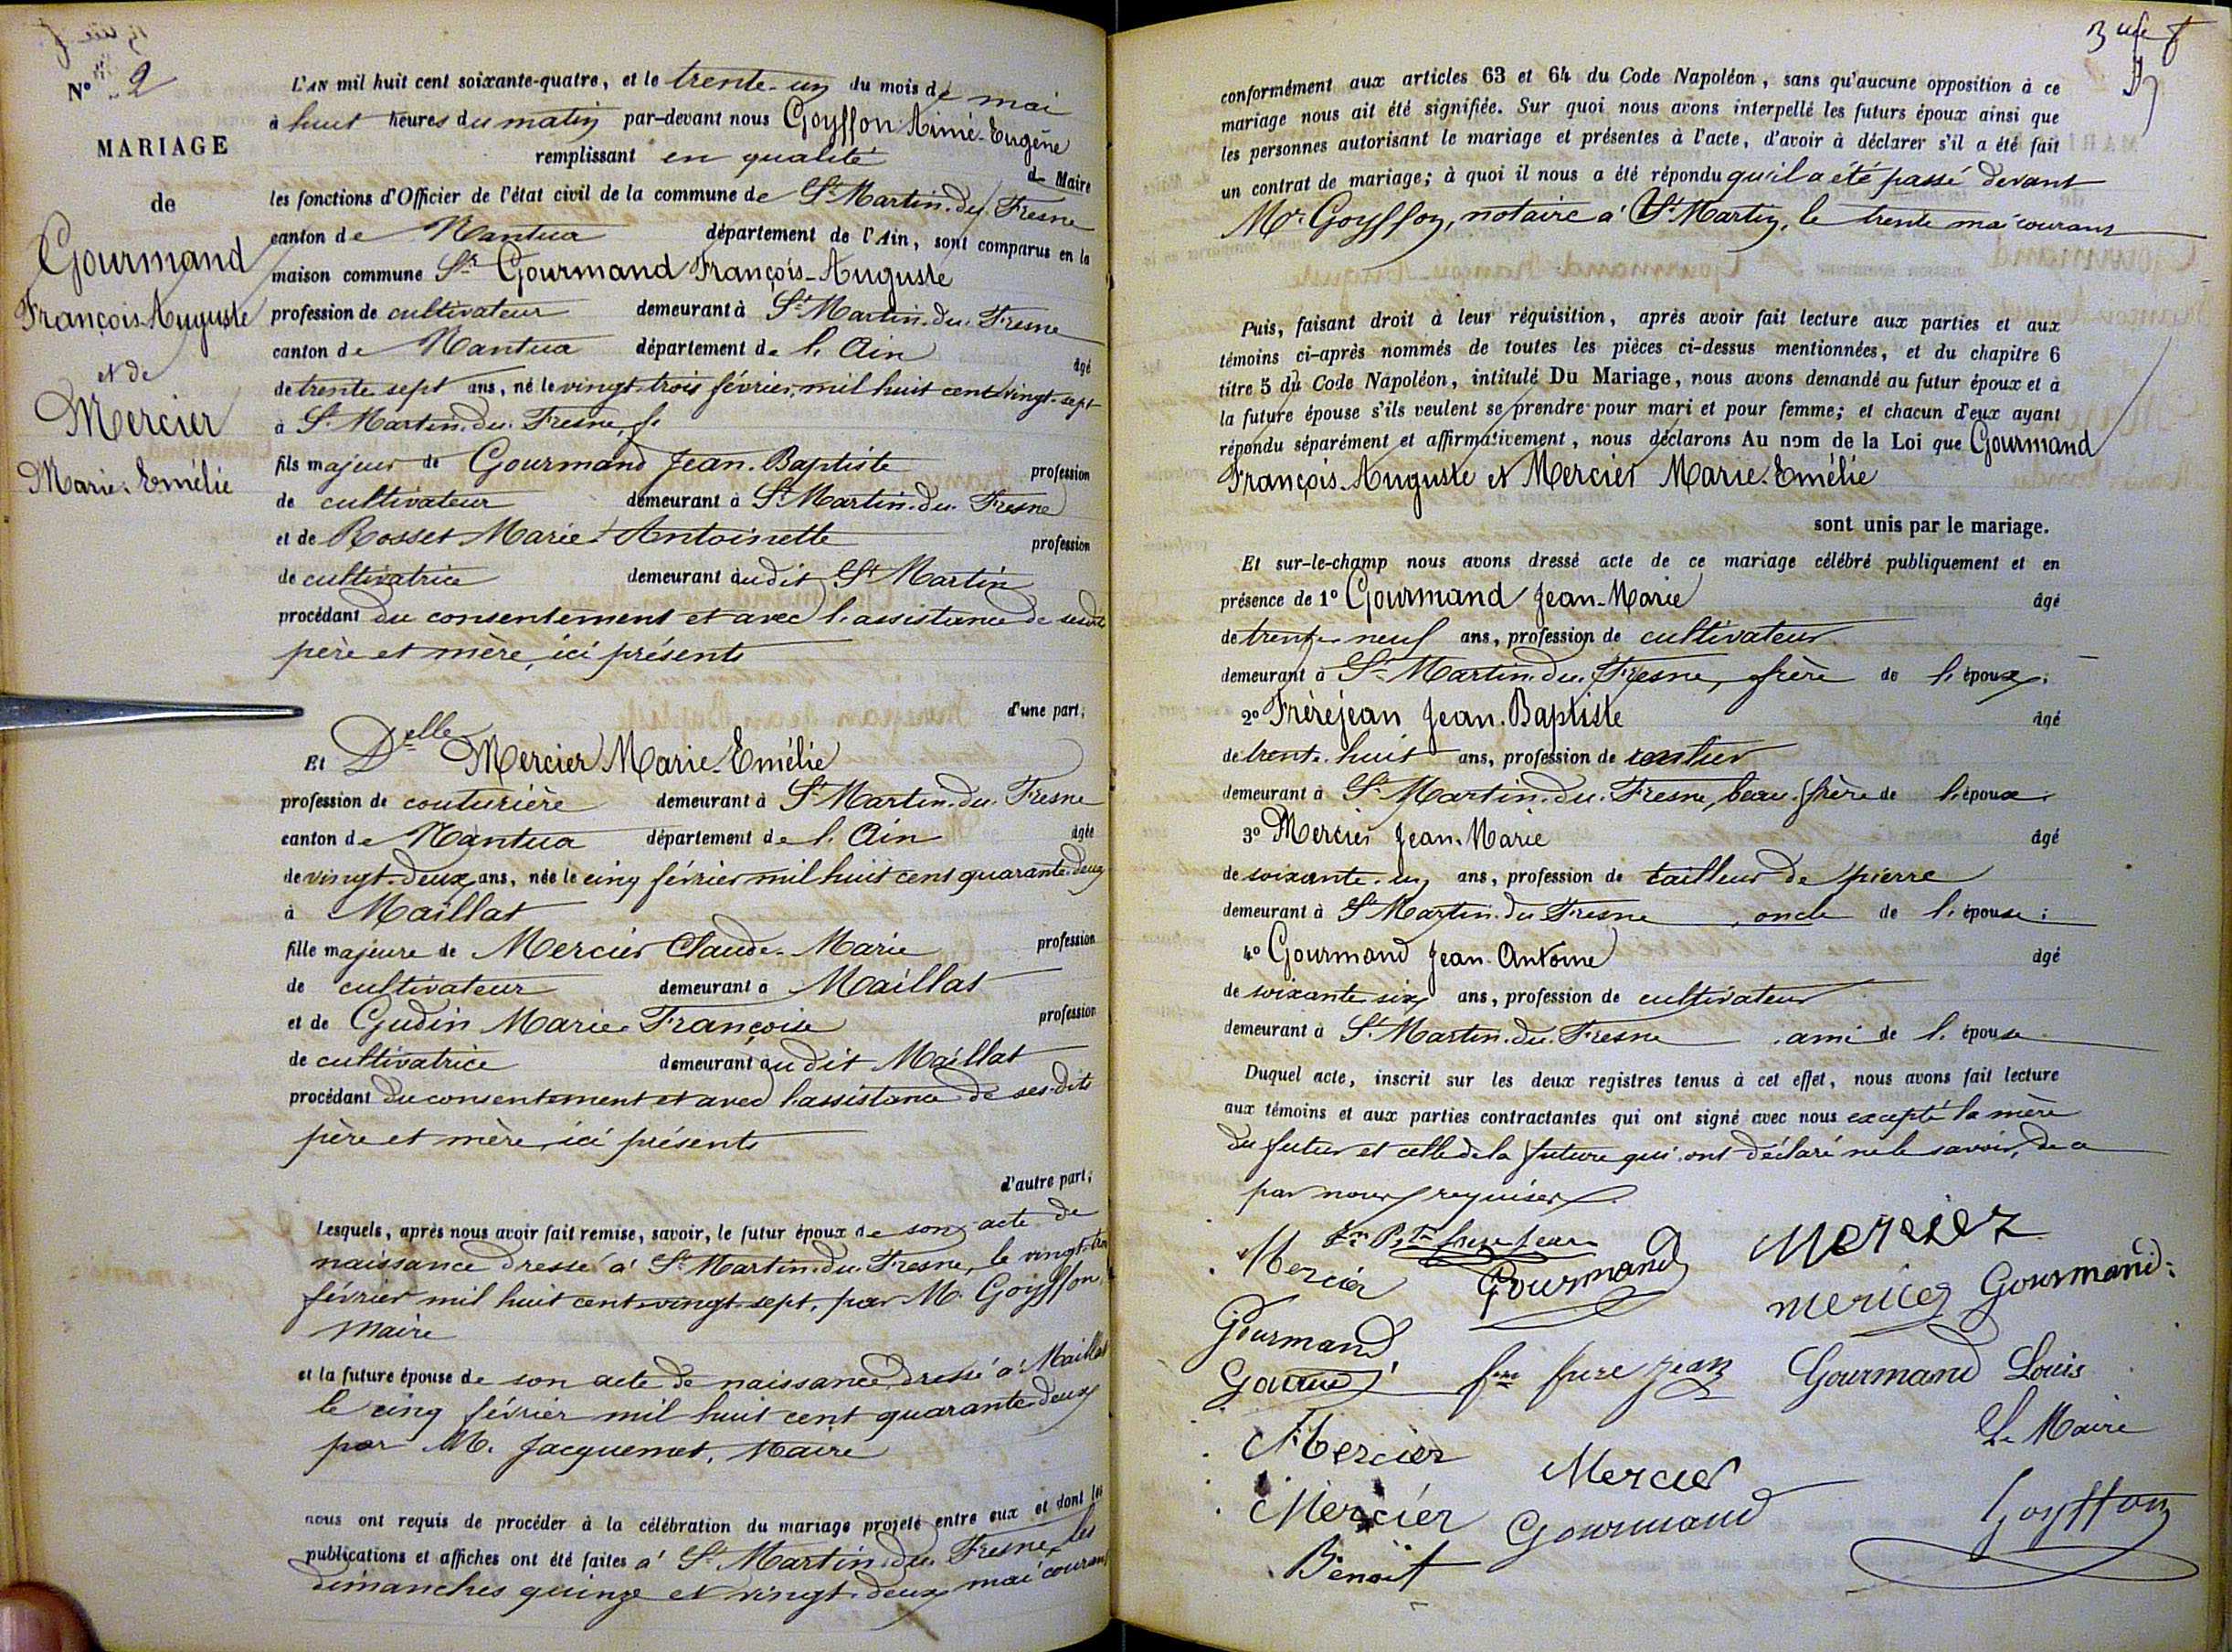 N° 2
MARIAGE
de
Gourmand
François-Auguste
et de
Mercier
Marie-Emélie
L'AN mil huit cent soixante-quatre, et le trente-un du mois de mai
à huit heures du matin par-devant nous Goyffon Aimé-Eugène
remplissant en qualité de Maire
les fonctions d'Officier de l'état civil de la commune de St Martin-du-Fresne
canton de Nantua département de l'Ain, sont comparus en la
maison commune Sr Gourmand François-Auguste
profession de cultivateur demeurant à St Martin-du-Fresne
canton de Nantua département de l'Ain âgé
de trente-sept ans, né le vingt-trois février, mil huit cent vingt-sept
à St Martin-du-Fresne,
fils majeur de Gourmand Jean-Baptiste profession
de cultivateur demeurant à St Martin-du-Fresne
et de Rosset Marie-Antoinette profession
de cultivatrice demeurant audit St Martin
procédant du consentement et avec l'assistance de sesdits
père et mère, ici présents
d'une part;
Et Delle Mercier Marie-Emélie
profession de couturière demeurant à St Martin-du-Fresne
canton de Nantua département de l'Ain âgée
de vingt-deux ans, née le cinq février mil huit cent quarante-deux
à Maillat
fille majeure de Mercier Claude-Marie profession
de cultivateur demeurant à Maillat
et de Gudin Marie-Françoise profession
de cultivatrice demeurant audit Maillat
procédant du consentement et avec l'assistance de ses-dits
père et mère, ici présents
d'autre part;
Lesquels, après nous avoir fait remise, savoir, le futur époux de son acte de
naissance dressé à St Martin-du-Fresne, le vingt-trois
février mil huit cent vingt-sept, par M. Goyffon,
Maire
et la future épouse de son acte de naissance, dressé à Maillat
le cinq février mil huit cent quarante-deux
par M. Jacquemet, Maire
nous ont requis de procéder à la célébration du mariage projeté entre eux et dont les
publications et affiches ont été faites à St Martin-du-Fresne, les
dimanches quinze et vingt-deux mai courant
conformément aux articles 63 et 64 du Code Napoléon, sans qu'aucune opposition à ce
mariage nous ait été signifiée. Sur quoi nous avons interpellé les futurs époux ainsi que
les personnes autorisant le mariage et présentes à l'acte, d'avoir à déclarer s'il a été fait
un contrat de mariage; à quoi il nous a été répondu qu'il a été passé devant
Mr Goyffon, notaire à St Martin, le trente mai courant
Puis, faisant droit à leur réquisition, après avoir fait lecture aux parties et aux
témoins ci-après nommés de toutes les pièces ci-dessus mentionnées, et du chapitre 6
titre 5 du Code Napoléon, intitulé Du Mariage, nous avons demandé au futur époux et à
la future épouse s'ils veulent se prendre pour mari et pour femme; et chacun d'eux ayant
répondu séparément et affirmativement, nous déclarons Au nom de la Loi que Gourmand
François-Auguste et Mercier Marie-Emélie
sont unis par le mariage.
Et sur-le-champ nous avons dressé acte de ce mariage célébré publiquement et en
présence de 1° Gourmand Jean-Marie âgé
de trente-neuf ans, profession de cultivateur
demeurant à St Martin-du-Fresne, frère de l'époux;
2° Frèrejean Jean-Baptiste âgé
de trente-huit ans, profession de rentier
demeurant à St Martin-du-Fresne, beau-frère de l'époux
3° Mercier Jean-Marie âgé
de soixante-un ans, profession de tailleur de pierre
demeurant à St Martin-du-Fresne, oncle de l'épouse;
4° Gourmand Jean-Antoine âgé
de soixante-six ans, profession de cultivateur
demeurant à St Martin-du-Fresne, ami de l'épouse
Duquel acte, inscrit sur les deux registres tenus à cet effet, nous avons fait lecture
aux témoins et aux parties contractantes qui ont signé avec nous excepté la mère
du futur et celle de la future qui ont déclaré ne le savoir, de ce
par nous requises.
Mercier Gourmand Mercier
Gourmand
Gourmand
Gourmand Louis
Le Maire
Mercier Mercier
Mercier Gourmand Goyffon
Benoit